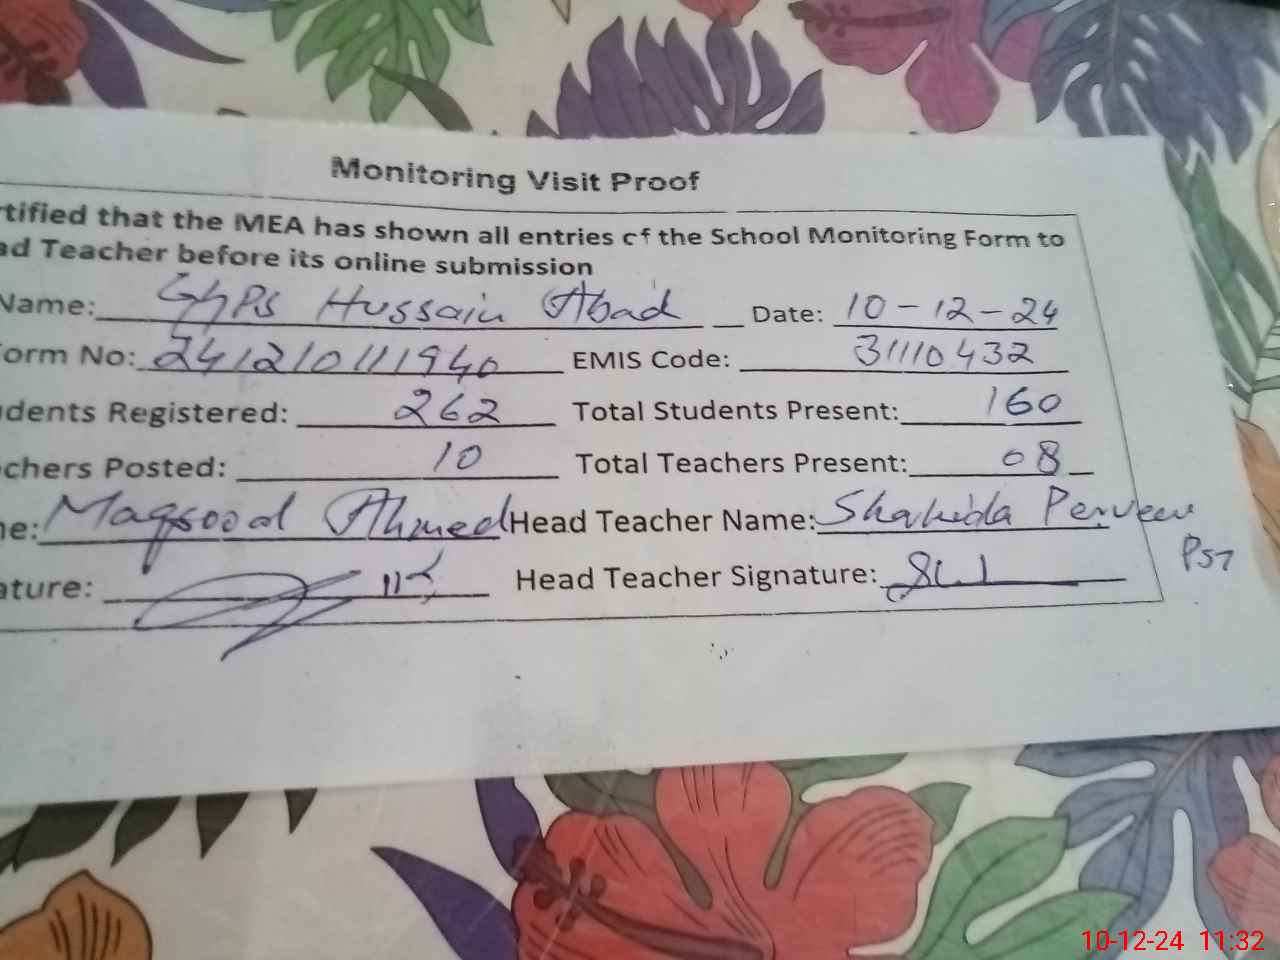 Monitoring Visit Proof
rtified that the MEA has shown all entries of the School Monitoring Form to
ad Teacher before its online submission
Name: GGPS Hussain Abad Date: 10-12-24
orm No: 241210111940 EMIS Code: 31110432
udents Registered: 262 Total Students Present: 160
chers Posted: 10 Total Teachers Present: 08
ne: Maqsood Ahmed Head Teacher Name: Shahida Perveen
PST
ature: Head Teacher Signature:
10-12-24 11:32